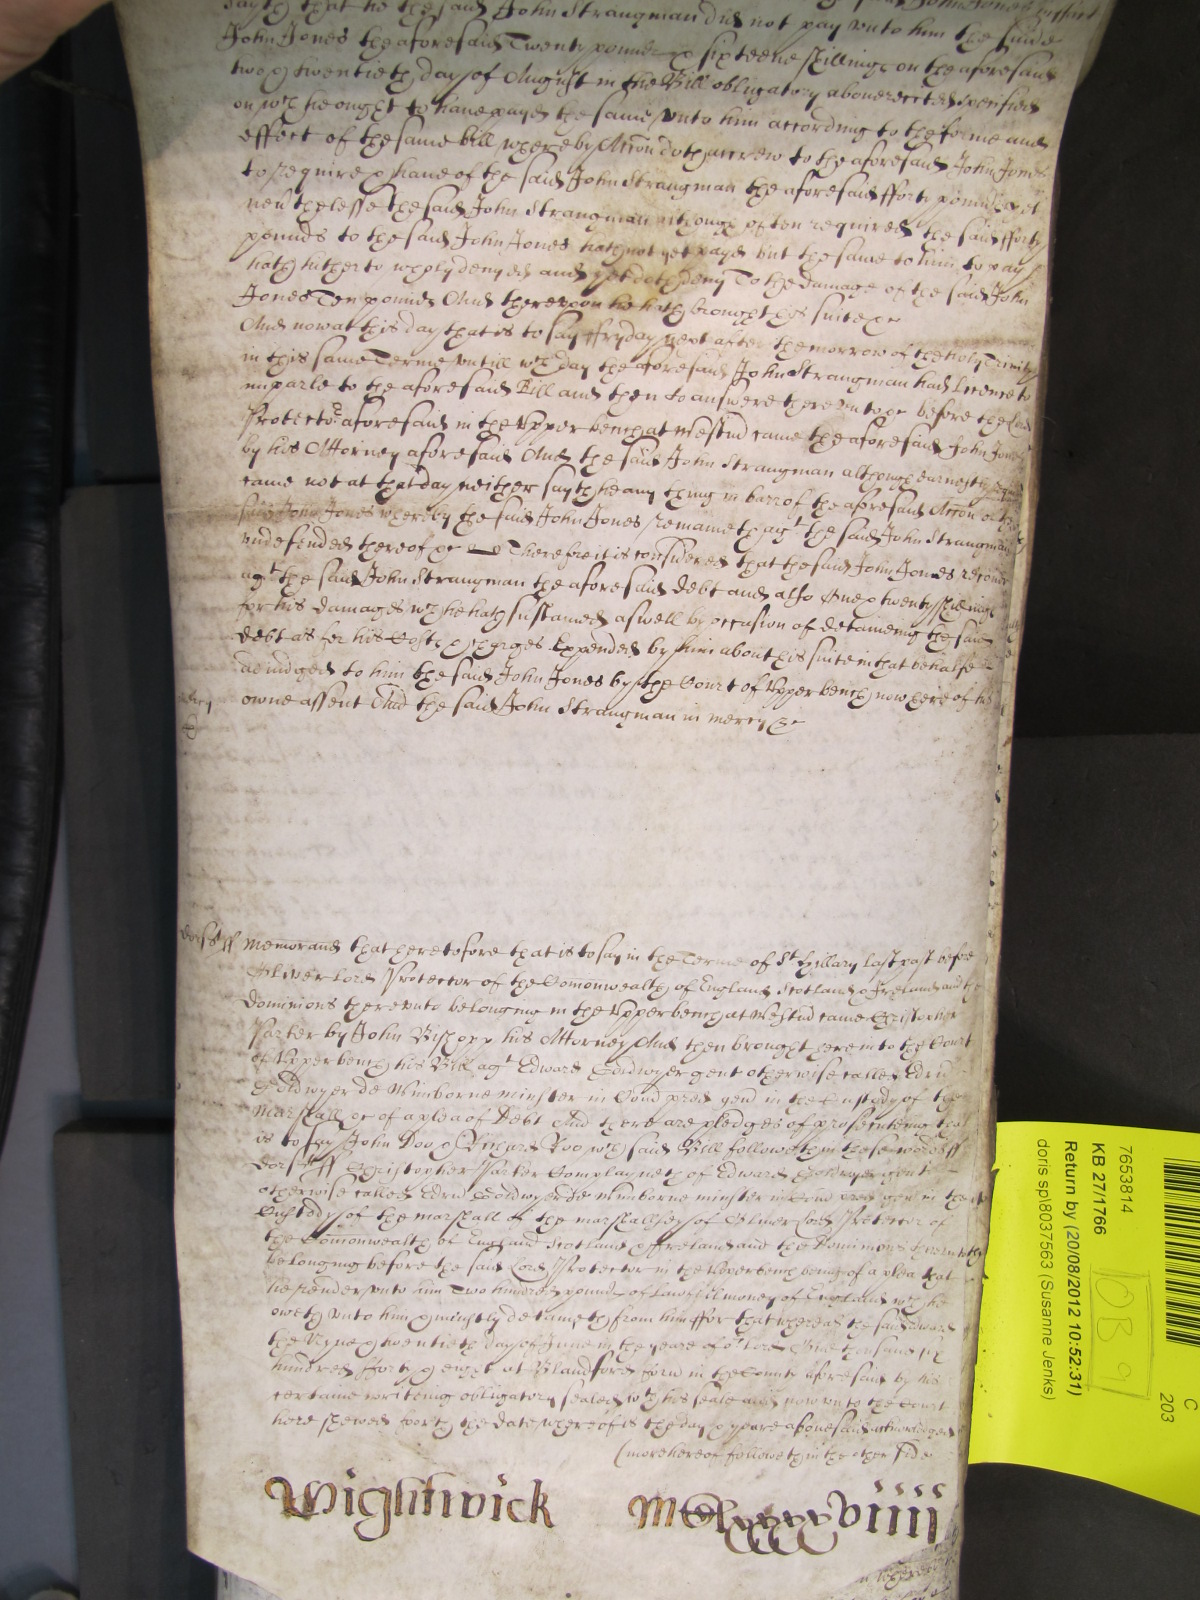 sayth that he the said John Strangman did not pay unto him the saide
John Jones the aforesaid Twenty pounds & sixteene shillings on the aforesaid
two & twentieth day of August in the Bill obligatory above recited specified
on wch he ought to have payed the same unto him according to the forme and
effect of the same bill whereby Accon doth accrew to the aforesaid John Jones
to require & have of the said John Strangman the aforesaid fforty pounds yet
nevthelesse the said John Strangman although often required the said fforty
pounds to the said John Jones hath not yet payed but the same to him to pay
hath hitherto wholy denyed and yet doth deny To the damage of the said John
Jones Ten pounds And thereupon he hath brought his suite &c
And now at this day that is to say ffryday next after the morrow of the holy Trinity
in this same Terme untill wch day the aforesaid John Strangman had Licence to
imparle to the aforesaid Bill and then to answere thereunto &c before the Lord
Protector aforesaid in the Upper bench at Westmd came the aforesaid John Jones
by his Attorney aforesaid And the said John Strangman although earnestly
came not at that day neither sayth he any thing in barr of the aforesaid Accon of the
said John Jones whereby the said John Jones remaineth agt the said John Strangman
undefended thereof &c Therefore it is considered that the said John Jones recover
agt the said John Strangman the aforesaid debt and also One & twenty shillings
for his damages wch he hath sustained aswell by occasion of detaineing the said
debt as for his Costs & charges Expended by him about his suite in that behalfe
adiudged to him the said John Jones by the Court of Upper bench now here of his
owne assent And the said John Strangman in mercy &c
mercy
Dorst ss Memorand that heretofore that is to say in the Terme of St Hillary last past before
Oliver Lord Protector of the Comonwealth of England Scotland & Ireland and the
Dominions thereunto belonging in the Upper bench at Westmd came Christopher
by John Bishopp his Attorney And then brought here into the Court
of Upper bench his Bill agt Edward Goldwyer gent otherwise called Edrd
Goldwyer de Wimborne minster in Com pred gen in the Custody of the
Marshall &c of a plea of Debt And there are pledges of prosecuting that
is to say John Doo & Richard Roo wch said Bill followeth in these words ss
Dorst ss Christopher Complayneth of Edward Goldwyer gent
otherwise called Edrd Goldwyer de Wimborne minster in Com pred gen in the
Custody of the marshall of the marshallsey of Oliver Lord Protector of
the Comonwealth of England Scotland & Ireland and the Dominions thereunto
belonging before the said Lord Protector in the Upper bench being of a plea that
he render unto him Two hundred pounds of lawfull money of England wch he
oweth unto him & uniustly detaineth from him ffor that whereas the said Edward
the Nyne & twentieth day of June in the yeare of or Lord One thousand six
hundred fforty & eight at Blandford fforu in the County aforesaid by his
certaine writeing obligatory sealed wth his seale and now unto the Court
here shewed forth the date whereof is the day & yeare abovesaid acknowledged
(more hereof followeth in the other side
Wightwick MClxxxxviiii
7653814
KB 27/1766
Return by (20/08/2012 10:52:31)
doris sp\8037563 (Susanne Jenks)
C
203
DB 9